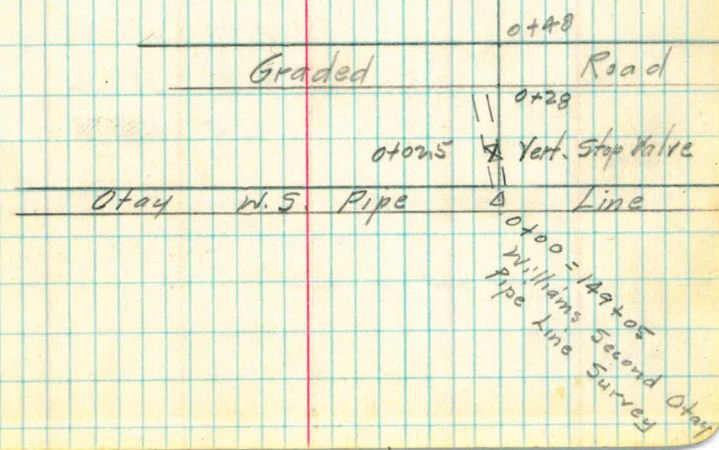 0+48
Graded Road
0+28
0+02.5 Vert. Stop Valve
Otay W.S. Pipe Line
0+00 = 149+05
Williams Second Otay
Pipe Line Survey